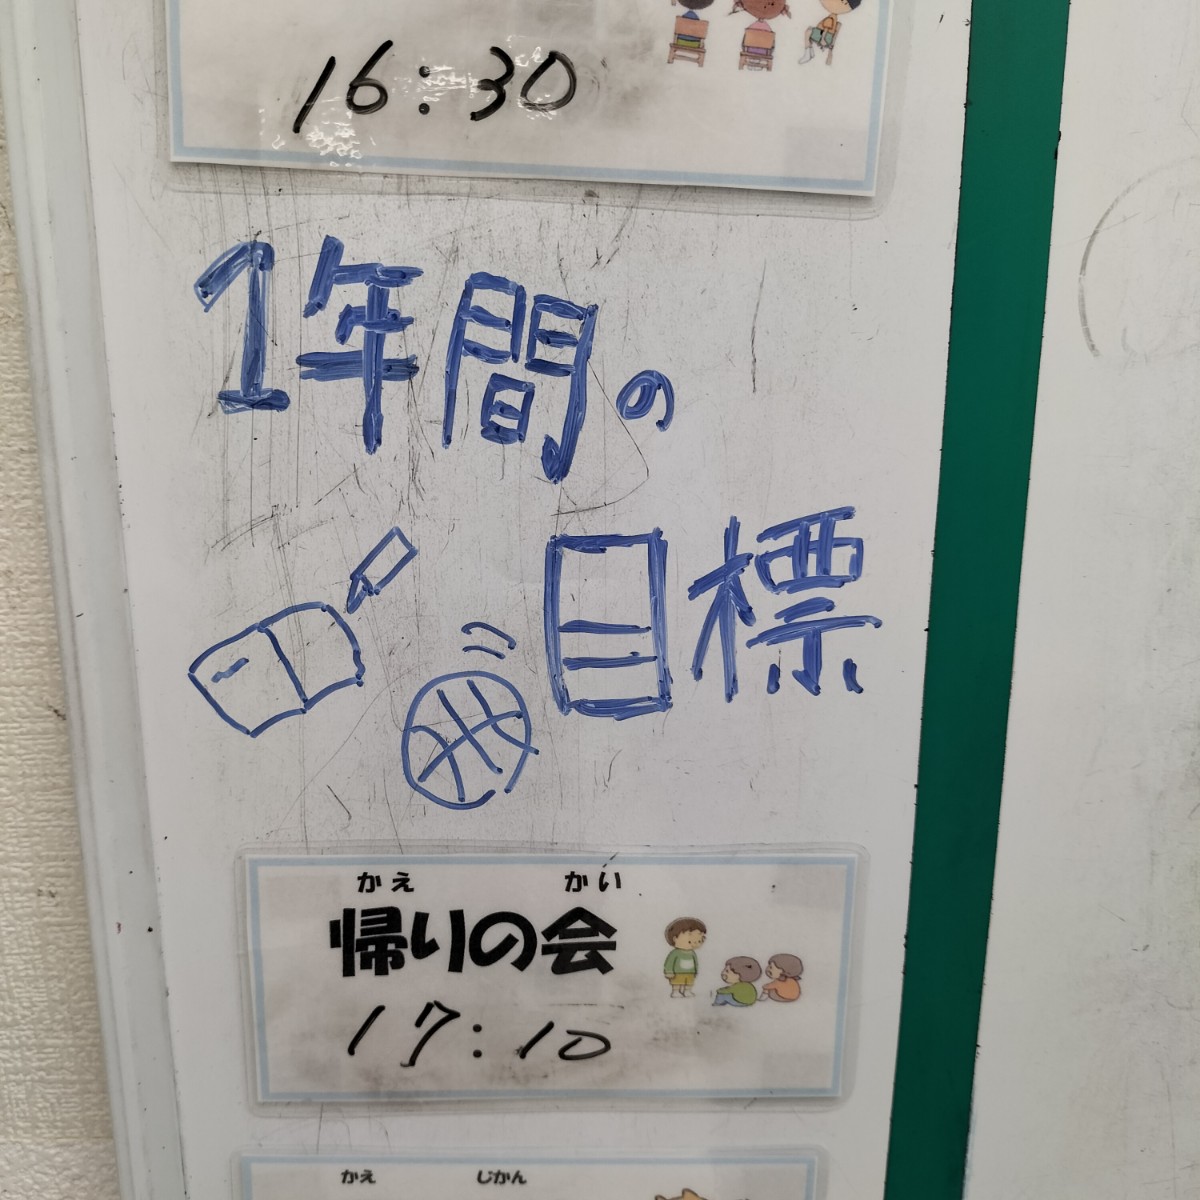 16:30
1年間の
目標
かえ かい
帰りの会
17:10
かえ じかん